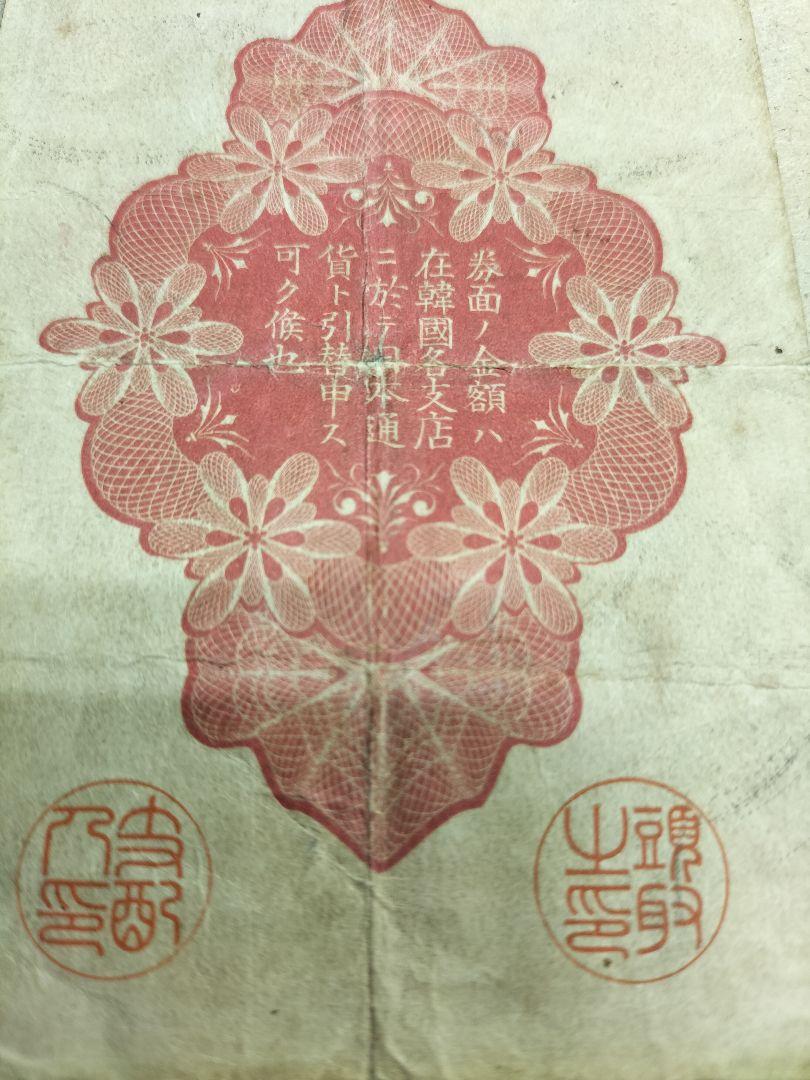 券面ノ金額ハ
在韓國各支店
ニ於テ日本通
貨ト引替申ス
可ク候也
頭取
之印
支配
人印